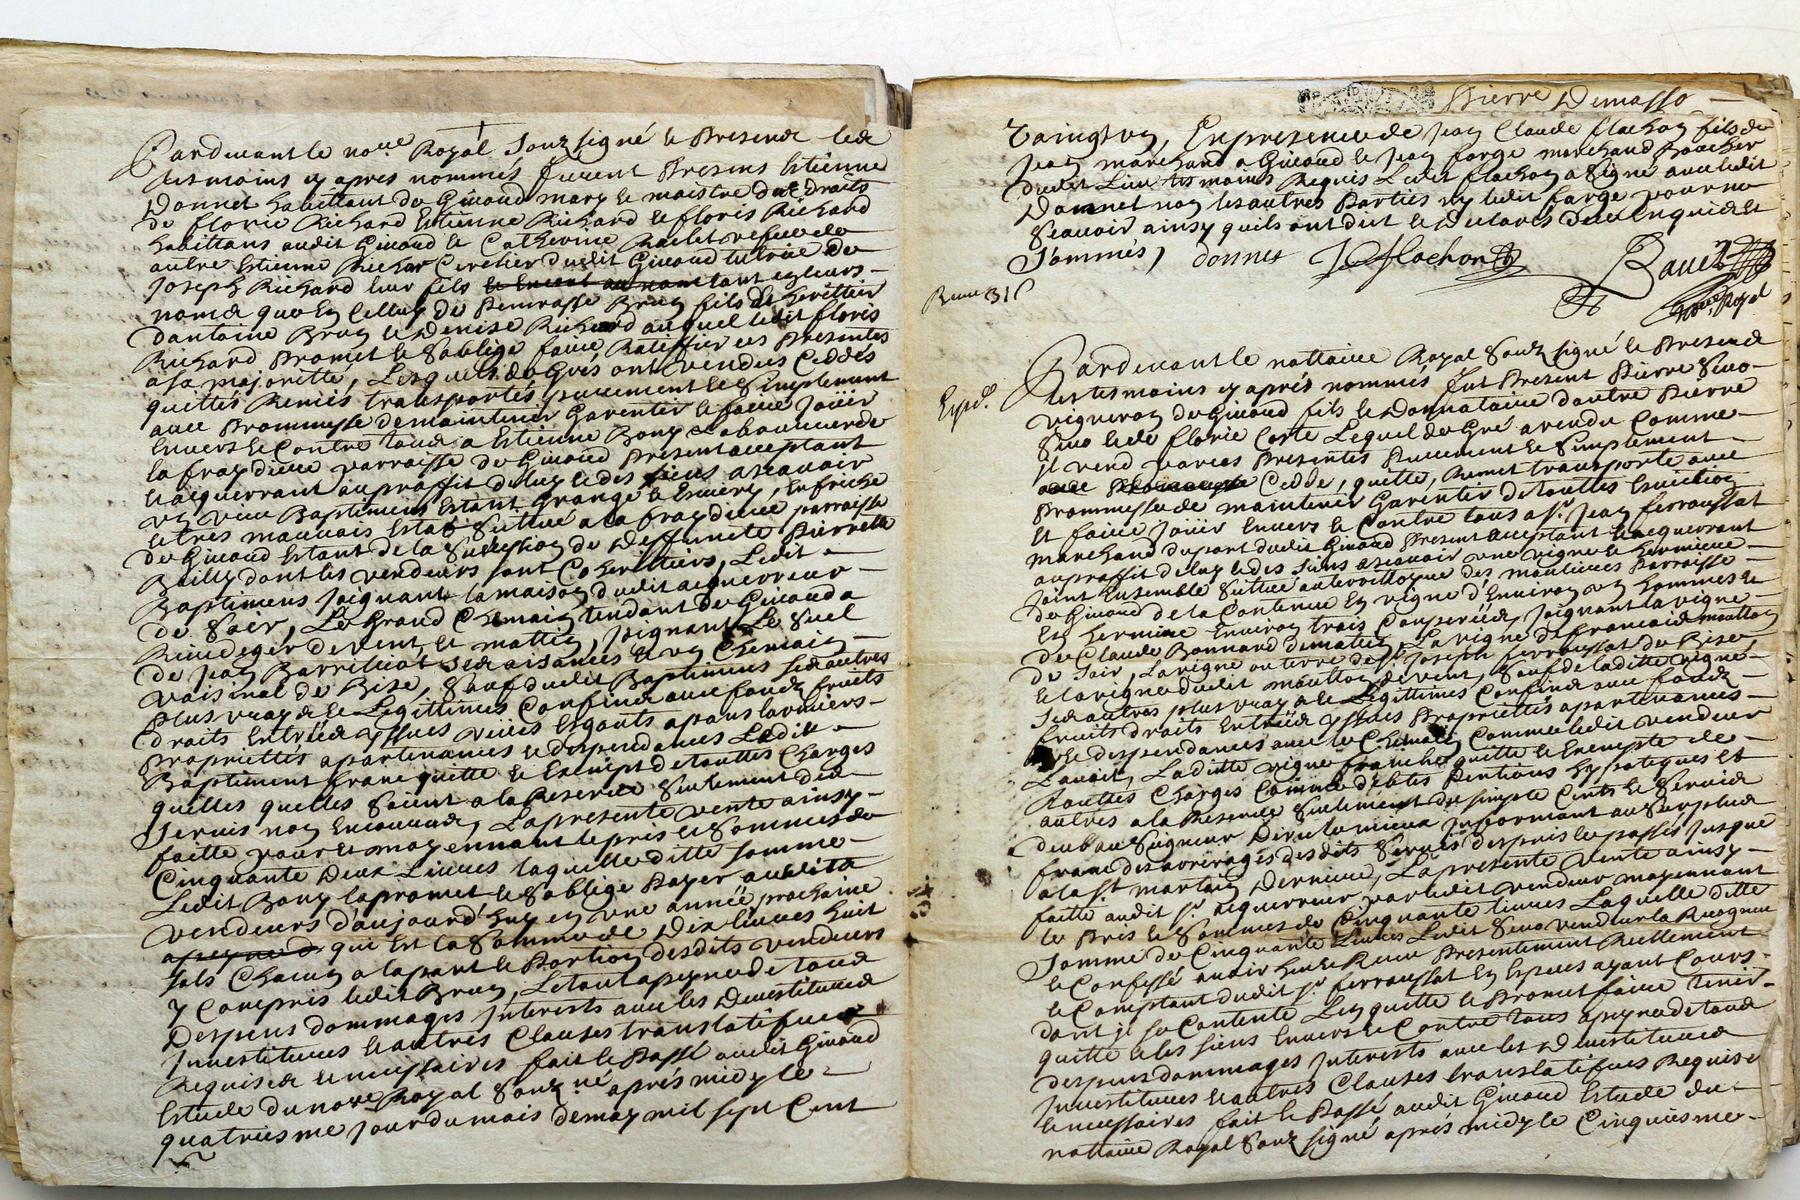 Pardevant le no.re Royal Souz signé le Presend led
tesmoins cy apres nommés furent Presens Estienne
Donnet habittant du Givaud mary le maistre des Droits
de florie Richard Estienne Richard le floris Richard
habittans audit Givaud le Catherine Raclet vefue de
autre Estienne Richar dudit Givaud tutrice de
Joseph Richard leur fils tant eg leurs
nomd que En Celluy de Benoiste Brun fils de heritier
Dantoine Brun le Denise Richard auquel ledit floris
Richard Promet le Soblige faire Rattiffier ces Presentes
a sa majoritté, Lesquels de Grés ont vendus Ceddés
quittés Remis transportés purement le Simplement
avec Prommesse de maintenir Garentir le faire Joüir
Envers le Contre tous a Estienne Bony Laboureur de
la fraydiere parroisse du Givaud Present acceptant
le acquerrant au proffit de luy le des siens ascavoir
un vieu Baptiment Estant Grange le Escurie, En friche
le tres mauvais Estat Scittué a la fraydiere parroisse
du Givaud Estant de la Succession de Deffuncte Pierrette
Bailly dont les vendeurs sont Coheritiers, Ledit
Baptimens Joignant la maison dudit acquerreur
de Soir, Le Grand Chemain tendant du Givaud a
de vent, le mattin, Joignant Le Suel
de Jean Barrilliot sed aisances le un Chemain
Vaisinal de Bise, Sauf dudit Baptimens sed autres
plus vrayd le Legittimes Confind avec fondz fruits
droits Entréed yssues veües Esgouts apans larmiers
Propriettés apartenances le despendances Ledit
Baptiment franc quitte le Exempt de touttes Charges
quelles quelles Soient a la Reserve Seulement ded
Servis non Encourud, La presente vente ainsy
faitte pour le moyennant le pris le Sommes de
Cinquante Deux Livres laquelle ditte somme
Ledit Bony la promet le Soblige Payer audits
vendeurs d'aujourd'huy en une année prochaine
qui Est la Somme de Dix livres huit
sols Chacun a la part le Portion desdits vendeurs
y Compris ledit Brun, Le tout a peyne de tous
Despens dommages Interests avec les Devestitures
Investitures le autres Clauses translatifves
Requised le necessaires fait le Passé audit Givaud
Estude du no.re Royal Souz né après midy le
quatriesme Jour du mois de may mil sept Cent
Pierre Demasso
Vaingtun, En presence de Jean Claude flachon fils de
Jean marchand a Givaud le Jean farge marchand Boucher
dudit Lieu tesmoins Requis Ledit flachon a Signé avec ledit
Donnet non les autres Parties ny ledit farge pour ne
Scavoir ainsy quils ont dict le Declarés de ce Enquid et
Sommés, donnet J Flachon
no.re Royal
Pardevant le nottaire Royal Souz signé le Presend
Exped.
les tesmoins cy aprés nommés fut Present Pierre Sivo
vigneron du Givaud fils le Donnataire dautre Pierre
Sivo le de florie Corte Lequel de Gré a vendu Comme
Jl vend par ces Presentes Purement le Simplement
Cedde, quitte, Remet transporte avec
Prommesse de maintenir Garentir de touttes Esviction
Et faire Joüir Envers le Contre tous a S.r Jean ferroussat
marchand dudit Givaud Present acceptant le acquerrant
au proffit de luy le des Siens ascavoir une vigne le hermiere
Joint Ensemble Scittué au territtoyre des moulieres Parroisse
du Givaud de la Contenue En vigne d'Environ un hommee le
En hermiere Environ trois Couperééd, Joignant la vigne
de Claude Bonnard de matin, La vigne de francois moutton
de Soir, La vigne ou terre de S.r Joseph ferroussat de Bise
le la vigne dudit moutton de vent, Sauf de laditte vigne
sed autres plus vrayd le Legittimes Confind avec fondz
fruits droits Entréed yssues Propriettés apartenances
le despendances avec le Chemain Comme ledit vendeur
Lavoit, Laditte vigne franche quitte le Exempte de
touttes Charges Comme debtes Pentions hypoteques Et
autres a la Reserve Seulement du simple Cents le Servis
deub au Seigneur Direc le mieux Informant au Surplus
franc des arrerages desdits Servis despuis le passés Jusque
a la S.t martain Derniere, La presente vente ainsy
faitte audit S.r acquerreur par ledit vendeur moyennant
le Pris le Sommes de Cinquante livres Laquelle ditte
Somme de Cinquante Livres Ledit Sivo vendeur la Recogneu
le Confessé avoir heu le Receu Presentement Reellement
le Comptant dudit S.r ferroussat En Especes ayant Cours
dont jl se Contente Len quitte le Promet faire tenir
quitte le les siens Envers le Contre tous a peyne de tous
despens dommages Interests avec les Devestitures
Investitures le autres Clauses translatifves Requises
le necessaires fait le Passé audit Givaud Estude du
nottaire Royal Souz signé aprés midy le Cinquiesme